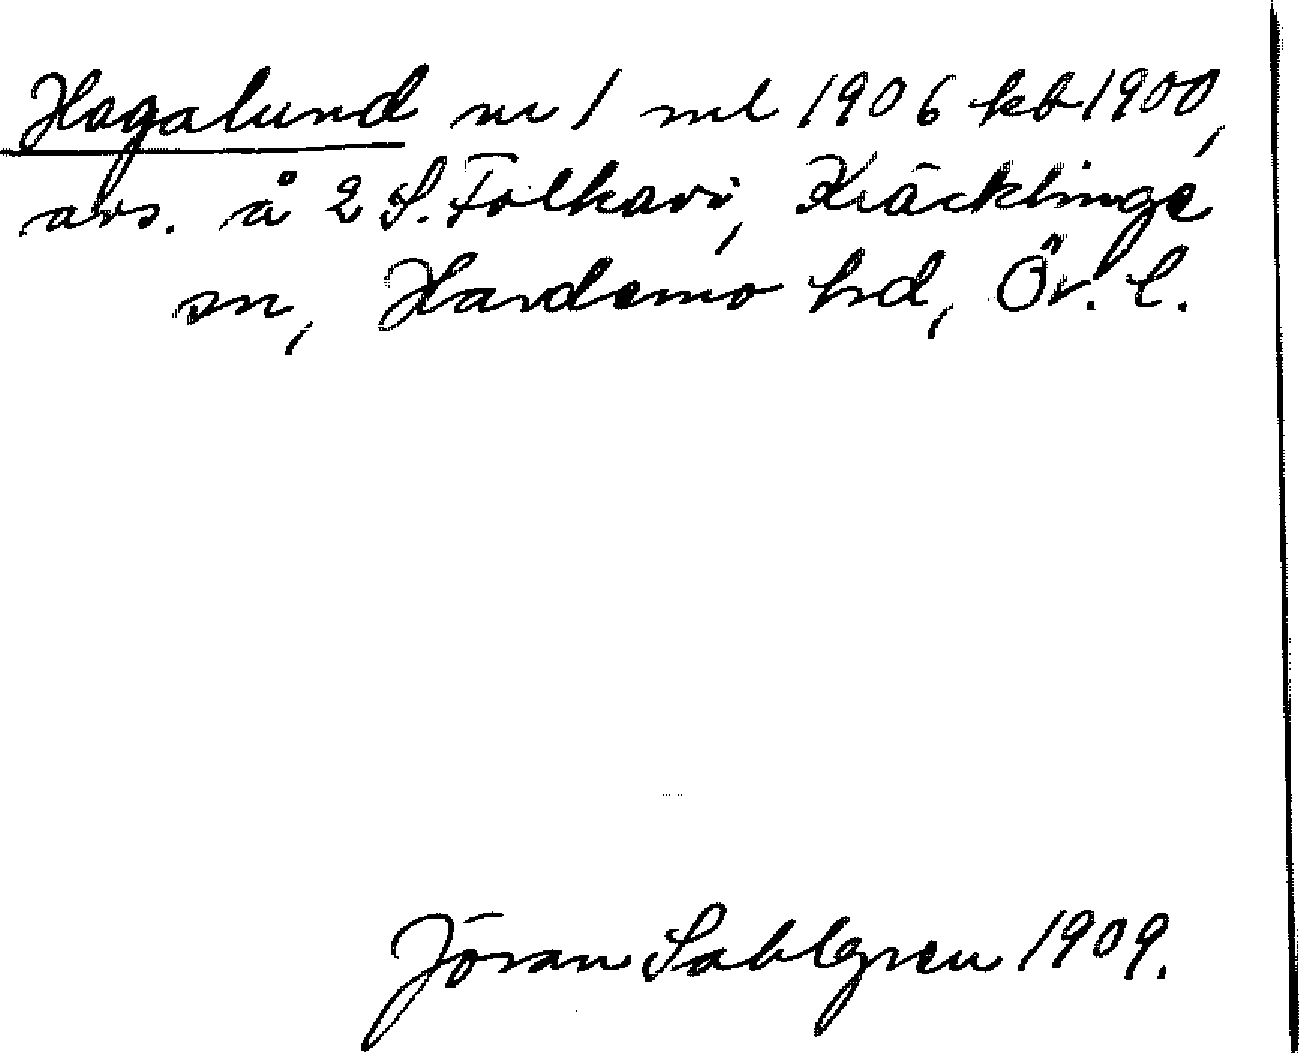 Hagalund nr 1 ml 1906 kb 1900,
avs. å 2 S. Folkavi, Kräcklinge
sn, Hardemo hd, Ör. l.
Jöran Sahlgren 1909.